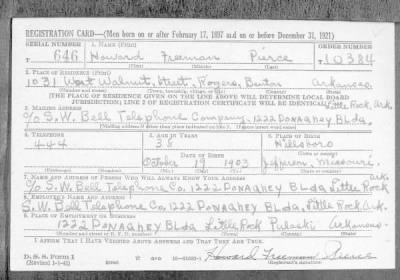 REGISTRATION CARD—(Men born on or after February 17, 1897 and on or before December 31, 1921)
SERIAL NUMBER 1. NAME (Print) ORDER NUMBER
T 646 Howard Freeman Pierce T 10384
(First) (Middle) (Last)
2. PLACE OF RESIDENCE (Print)
1031 West Walnut Street, Rogers, Benton Arkansas
(Number and street) (Town, township, village, or city) (County) (State)
[THE PLACE OF RESIDENCE GIVEN ON THE LINE ABOVE WILL DETERMINE LOCAL BOARD
JURISDICTION; LINE 2 OF REGISTRATION CERTIFICATE WILL BE IDENTICAL]
Little Rock Ark.
3. MAILING ADDRESS
c/o S.W. Bell Telephone Company, 1222 DONAGHEY BLDG.
[Mailing address if other than place indicated on line 2. If same insert word same]
4. TELEPHONE 5. AGE IN YEARS 6. PLACE OF BIRTH
444 38 Hillsboro
DATE OF BIRTH
October 19 1903 Jefferson, Missouri.
(Mo.) (Day) (Yr.) (State or country)
7. NAME AND ADDRESS OF PERSON WHO WILL ALWAYS KNOW YOUR ADDRESS
c/o S.W. Bell Telephone Co. 1222 DONAGHEY BLDG, Little Rock
8. EMPLOYER'S NAME AND ADDRESS Ark.
S.W. Bell Telephone Co. 1222 DONAGHEY BLDG, Little Rock, Ark.
9. PLACE OF EMPLOYMENT OR BUSINESS
1222 DONAGHEY BLDG Little Rock Pulaski Arkansas
(Number and street or R. F. D. number) (Town) (County) (State)
I AFFIRM THAT I HAVE VERIFIED ABOVE ANSWERS AND THAT THEY ARE TRUE.
D. S. S. Form 1
(Revised 1-1-42) (over) Howard Freeman Pierce
(Registrant's signature)